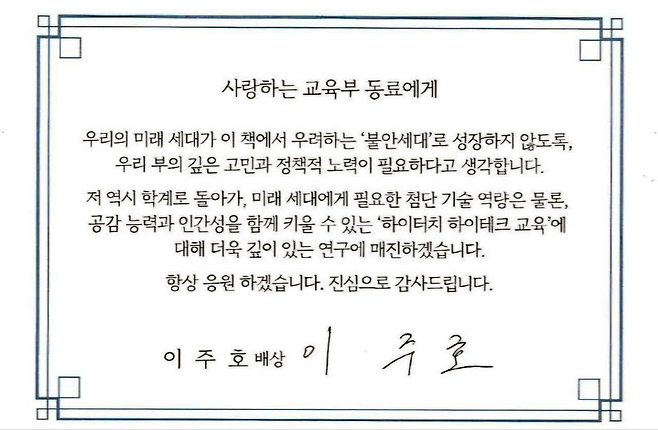 사랑하는 교육부 동료에게
우리의 미래 세대가 이 책에서 우려하는 '불안세대'로 성장하지 않도록,
우리 부의 깊은 고민과 정책적 노력이 필요하다고 생각합니다.
저 역시 학계로 돌아가, 미래 세대에게 필요한 첨단 기술 역량은 물론,
공감 능력과 인간성을 함께 키울 수 있는 '하이터치 하이테크 교육'에
대해 더욱 깊이 있는 연구에 매진하겠습니다.
항상 응원 하겠습니다. 진심으로 감사드립니다.
이 주 호 배상 이 주 호